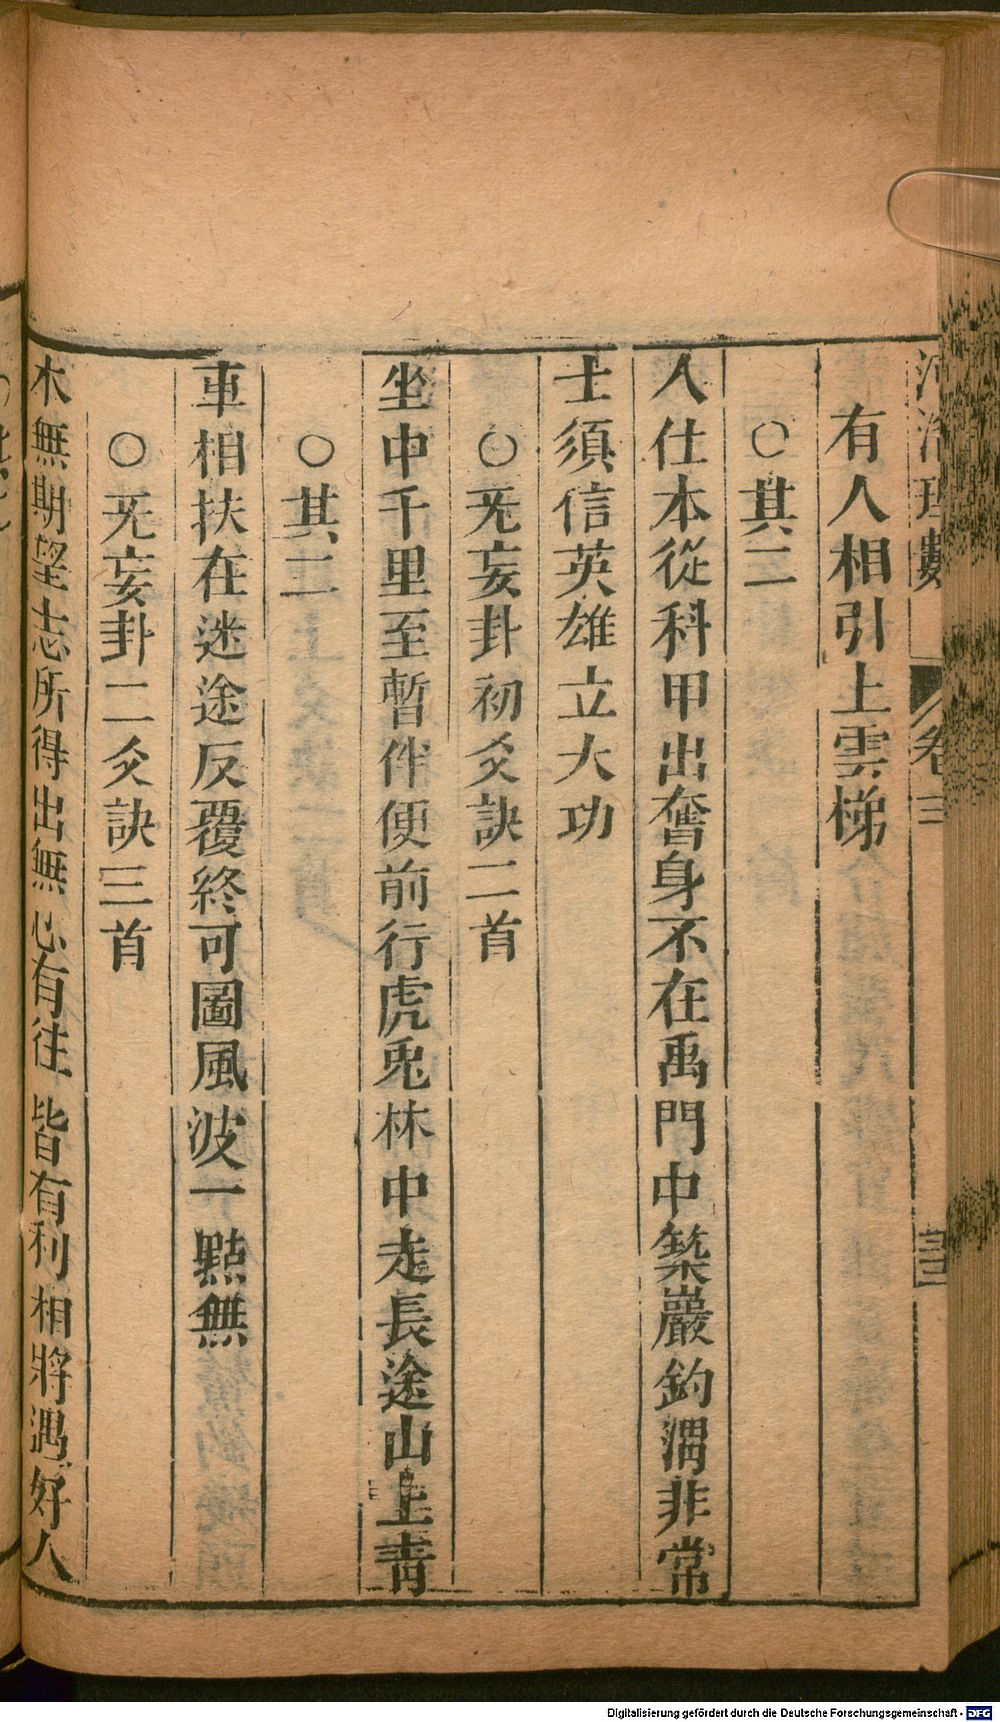 河洛理數
卷三
有人相引上雲梯
○其三
人仕本從科甲出奮身不在禹門中築巖釣渭非常
士須信英雄立大功
○无妄卦初爻訣二首
坐中千里至暫伴便前行虎兎林中走長途山上靑
○其二
車相扶在迷途反覆終可圖風波一點無
○无妄卦二爻訣三首
木無期望志所得出無心有往皆有利相將遇好人
Digitalisierung gefördert durch die Deutsche Forschungsgemeinschaft - DFG